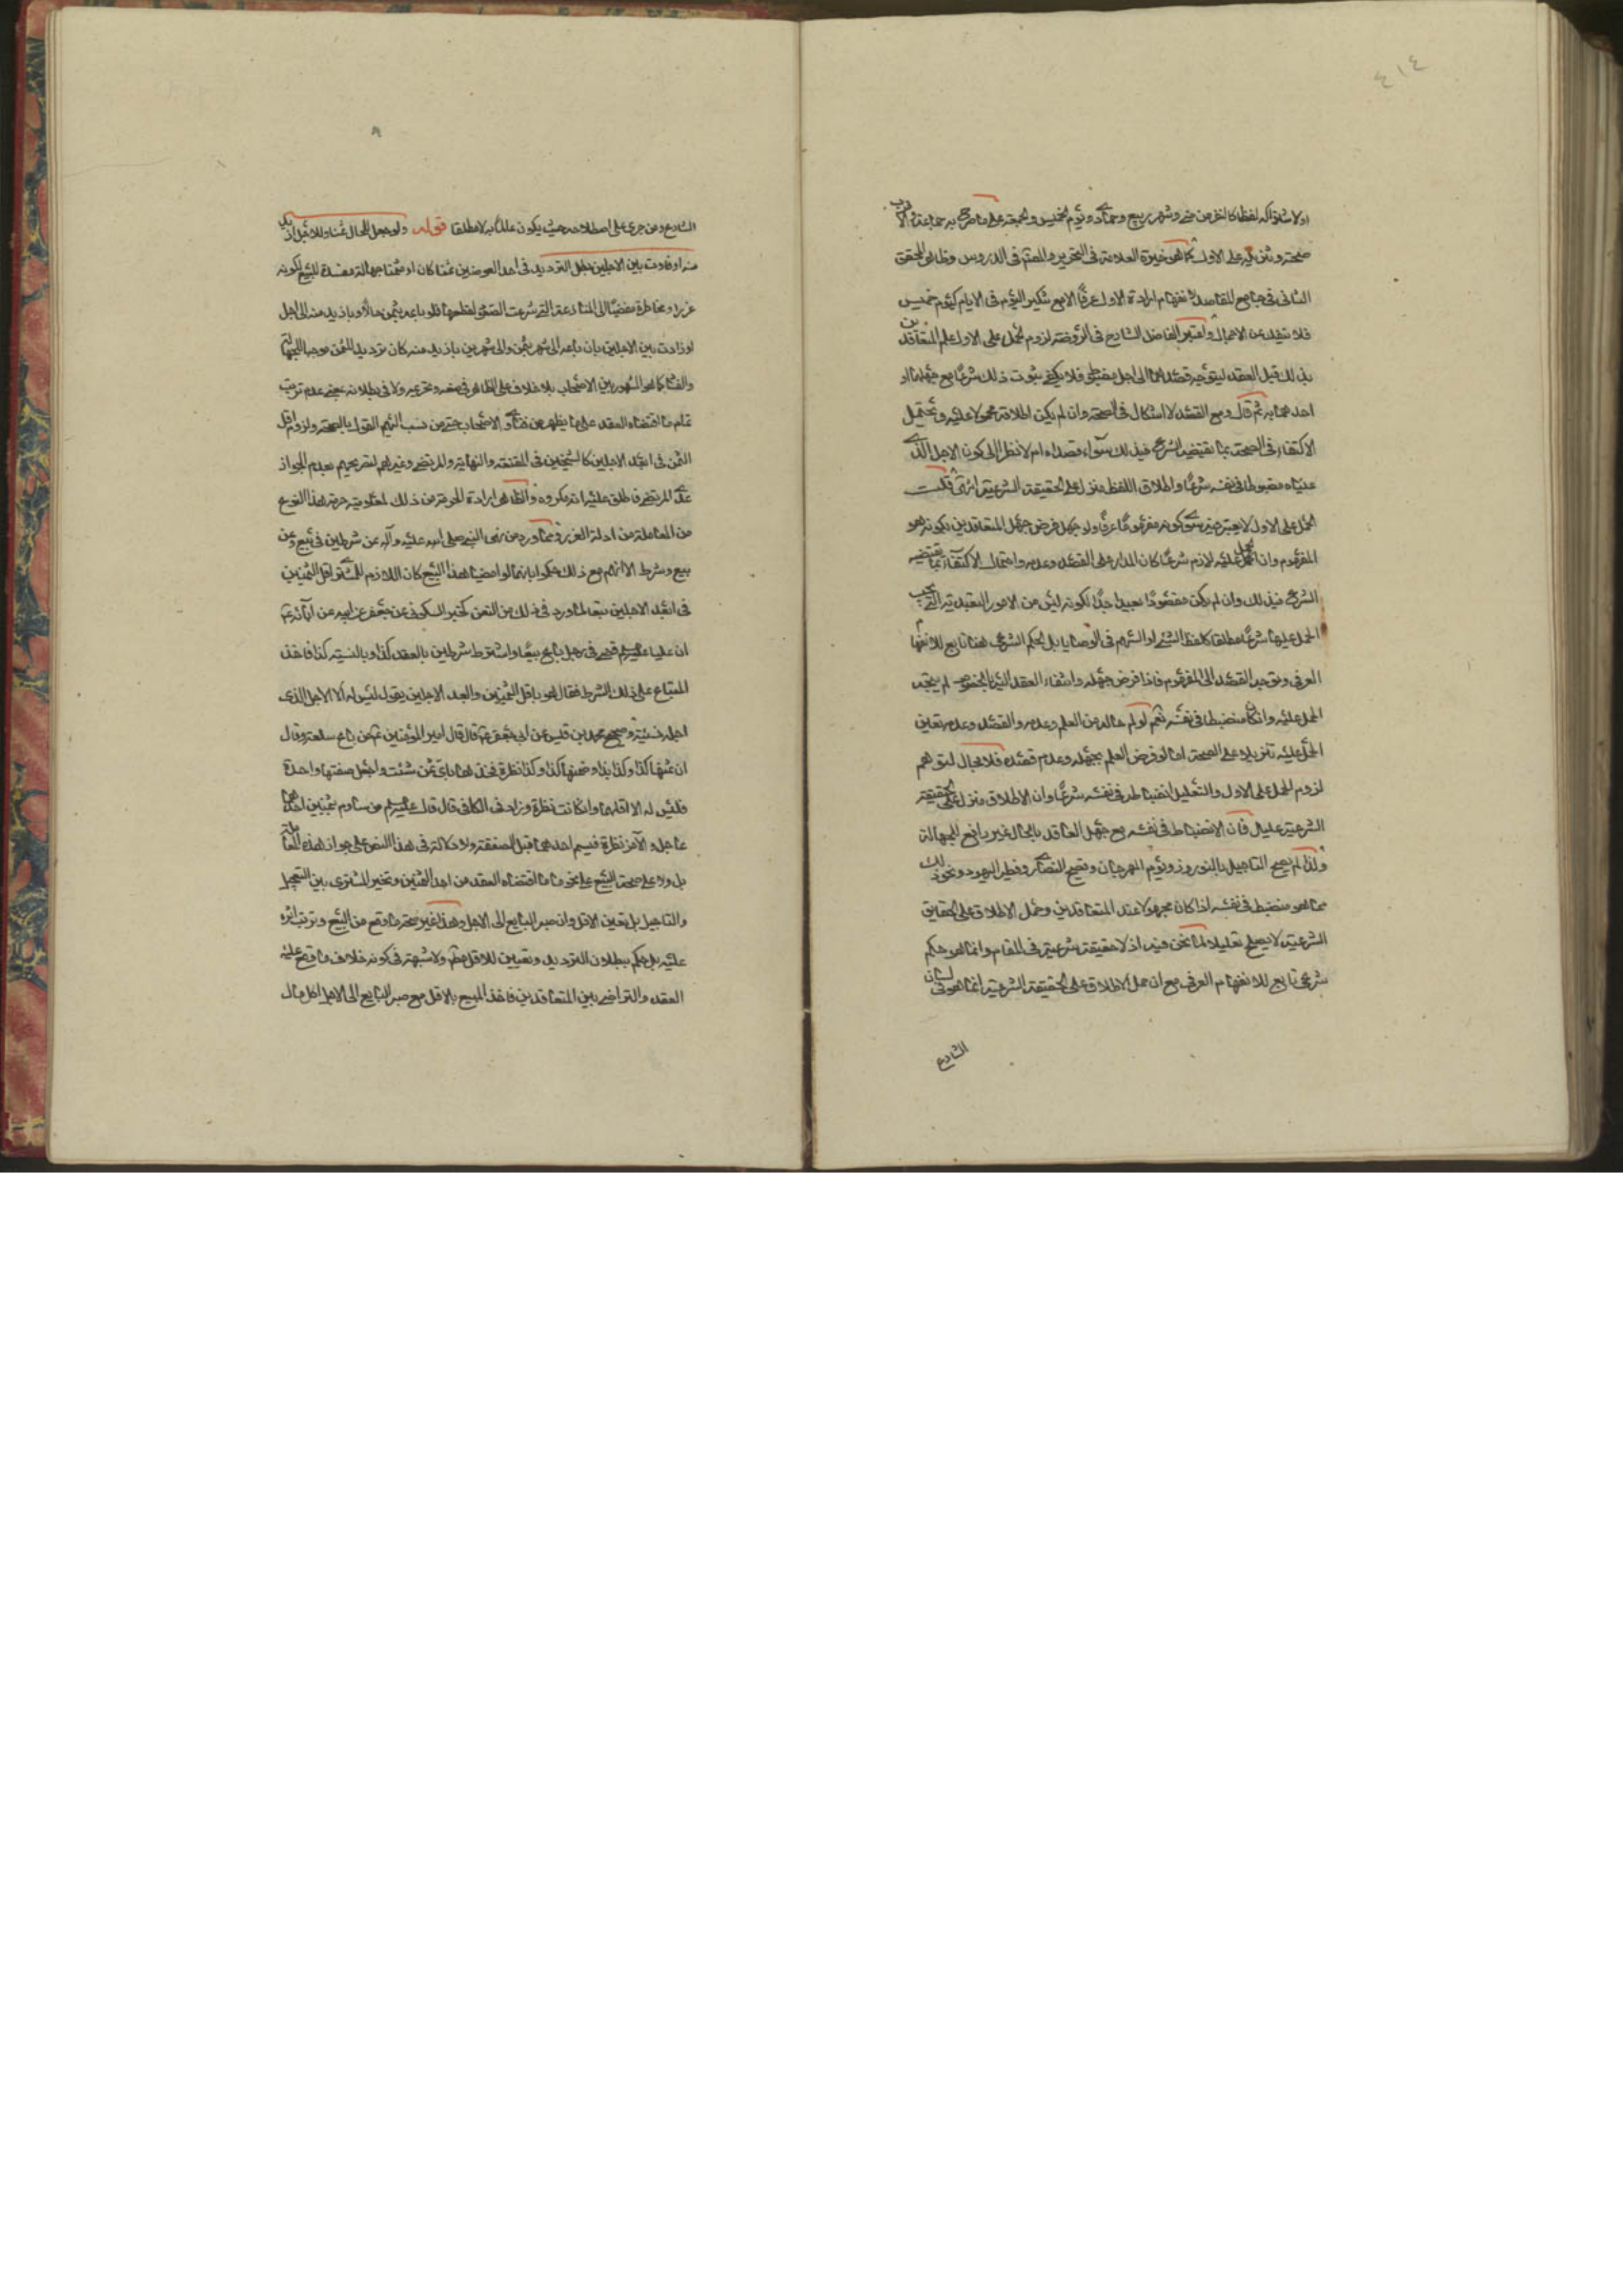 ٤١٤
او لا شتراكه لفظا كالنفر من حج وشهر ربيع وجمادى ويوم الخميس والجمعة على ما صرح به جماعة الاقرب
صحته وتنزيله على الاول كما هو خيرة العلامة في التحرير والمصنف في الدروس وظاهر المحقق
الثاني في جامع المقاصد لانفهام ارادة الاول عرفا الا مع تنكير اليوم في الايام كيوم خميس
فلا ينفك عن الاجمال واعتبر الفاضل الشارح في الروضة لزوم الحمل على الاول علم المتعاقدين
بذلك قبل العقد ليتوجه قصدهما الى اجل مضبوط فلا يكفي ثبوت ذلك شرعا مع جهلهما او
احدهما به ثم قال ومع القصد لا اشكال في الصحة وان لم يكن اطلاقه محمولا عليه ويحتمل
الاكتفاء في الصحة بما يقتضيه الشرع في ذلك سواء قصداه ام لا نظرا الى كون الاجل الذي
عيناه مضبوطا في نفسه شرعا واطلاق اللفظ منزل على الحقيقة الشرعية انتهى قلت
الحمل على الاول لا يعتبر فيه سوى كونه مفهوما عرفا ولو جهل فرض جهل المتعاقدين بكونه هو
المفهوم وان الحمل عليه لازم شرعا كان المدار على القصد وعدمه واحتمال الاكتفاء بما يقتضيه
الشرع في ذلك وان لم يكن مقصودا بعيد جدا لكونه ليس من الامور التعبدية التي يجب
الحمل عليها شرعا مطلقا كلفظ الشيء او السهم في الوصايا بل الحكم الشرعي هنا تابع للانفهام
العرفي وتوجه القصد الى المفهوم فاذا فرض جهله وانتفاء العقد اليه بالخصوص لم يتجه
الحمل عليه وان كان منضبطا في نفسه نعم لو لم حاله من العلم وعدمه والقصد وعدمه تعين
الحمل عليه تنزيلا على الصحة اما لو فرض العلم بجهله وعدم قصده فلا مجال لتوهم
لزوم الحمل على الاول والتعليل انضباطه في نفسه شرعا وان الاطلاق منزل على الحقيقة
الشرعية عليل فان الانضباط في نفسه مع جهل العاقد بالحال غير رافع للجهالة
ولذا لم يصح التاجيل بالنوروز ويوم المهرجان وفصح النصارى وفطر اليهود ونحو ذلك
مما هو منضبط في نفسه اذا كان مجهولا عند المتعاقدين وحمل الاطلاق على الحقايق
الشرعية لا يصلح تعليلا لما نحن فيه اذ لا حقيقة شرعية في المقام وانما هو حكم
شرعي تابع للانفهام العرفي مع ان حمل الاطلاق على الحقيقة الشرعية انما هو في لسان
الشارع
الشارع ومن جرى على اصطلاحه حيث يكون علما به لا مطلقا قوله ولو جعل للحال ثمنا وللاجل ازيد
منه او فاوت بين الاجلين بطل الترديد في احد العوضين ثمنا كان او مثمنا جهالة مفسدة للبيع لكونه
غررا ومخاطرة مفضيا الى المنازعة التي شرعت الصيغ لقطعها فلو باعه بثمن حالا وبازيد منه الى اجل
او زادت بين الاجلين بان باعه الى شهر بثمن والى شهرين بازيد منه كان ترديد الثمن موجبا للجهالة
والفساد كما هو المشهور بين الاصحاب بلا خلاف على الظاهر في منعه وتحريمه ولا في بطلانه بمعنى عدم ترتب
تمام ما اقتضاه العقد على ما يظهر من فتاوى الاصحاب حتى من نسب اليهم القول بالصحة ولزوم اقل
الثمن في ابعد الاجلين كالشيخين في المقنعة والنهاية والمرتضى وغيرهم لتصريحهم بعدم الجواز
عدى المرتضى فاطلق عليه انه مكروه والظاهر ارادة الحرمة من ذلك لمعلومية حرمة هذا النوع
من المعاملة من ادلة الغرر وما ورد من نهى النبي صلى الله عليه وآله عن شرطين في بيع وعن
بيع وشرط الا انهم مع ذلك حكموا بانهما لو امضيا هذا البيع كان اللازم للمشتري اقل الثمنين
في ابعد الاجلين تبعا لما ورد في ذلك من النص كخبر السكوني عن جعفر عن ابيه عن آبائه ع
ان عليا عليه السلم قضى في رجل باع بيعا واشترط شرطين بالنقد كذا وبالنسية كذا فاخذ
المتاع على ذلك الشرط فقال هو باقل الثمنين وابعد الاجلين يقول ليس له الا الاجل الذي
اجله نسية وصحيح محمد بن قيس عن ابي جعفر ع قال قال امير المؤمنين ع من باع سلعة وقال
ان ثمنها كذا وكذا يدا وثمنها كذا وكذا نظرة فخذها باي ثمن شئت واجعل صفقتها واحدة
فليس له الا اقلهما وان كانت نظرة وزاد في الكافي قال قال عليه السلم من ساوم بثمنين احدهما
عاجل والآخر نظرة فليسم احدهما قبل الصفقة ولا دلالة في هذا النص على جواز هذه المعاملة
بل ولا على صحة البيع على نحو ما اقتضاه العقد من احد الثمنين وتخير المشتري بين التعجيل
والتاجيل بل تعين الاقل وان صبر البايع الى الاجل وهذا غير صحة ما وقع من البيع وترتب اثره
عليه بل حكم ببطلان الترديد وتعيين للاقل ولا شبهة في كونه خلاف ما وقع عليه
العقد والتراضي بين المتعاقدين فاخذ المبيع بالاقل مع صبر البايع الى الاجل اكل مال